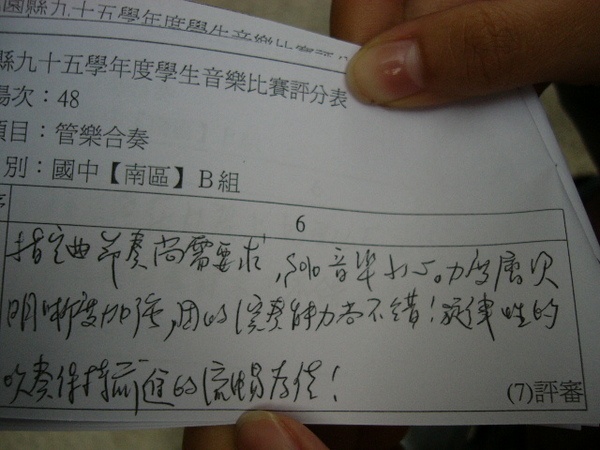 園縣九十五學年度學生音樂比賽評分
縣九十五學年度學生音樂比賽評分表
場次：48
項目：管樂合奏
別：國中【南區】B組
6
指定曲節奏尚需要求，solo音準小心。力度層次
明晰度加強，因的演奏能力尚不錯！旋律性的
吹奏保持前進的流暢為佳！
(7)評審